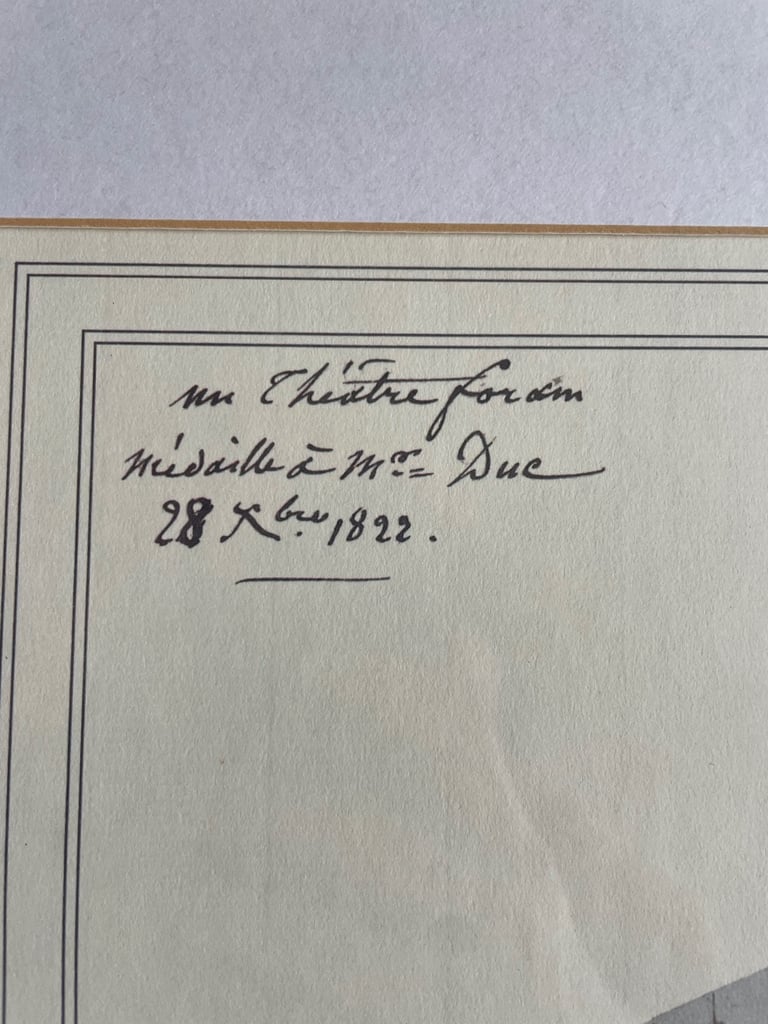 un Théâtre forain
médaille à Mr. Duc
28 Xbre 1822.